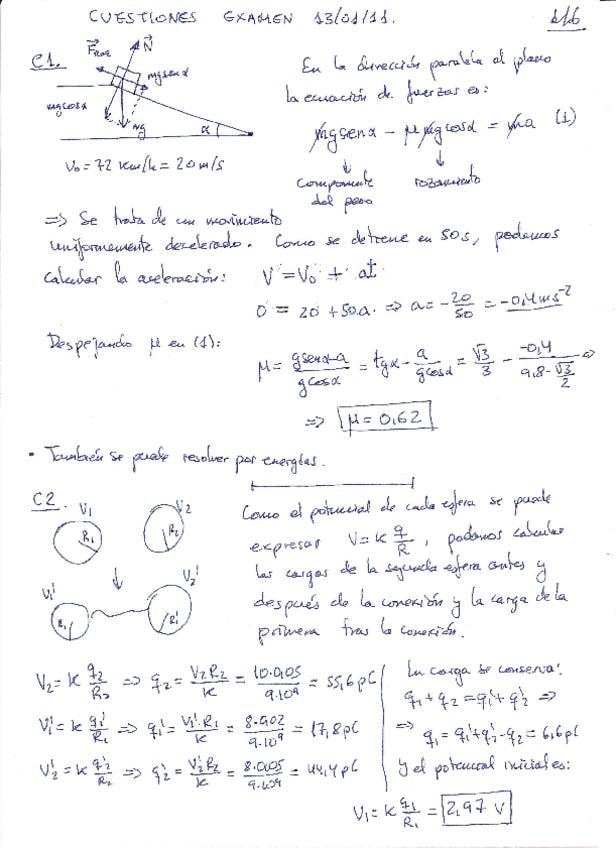 CUESTIONES EXAMEN 13/01/11.
1/6
C1.
F_ROZ
N
mg senα
mg cosα
mg
α
V₀ = 72 km/h = 20 m/s
En la dirección paralela al plano
la ecuación de fuerzas es:
mg senα - μ mg cosα = ma (1)
componente del peso
rozamiento
=> Se trata de un movimiento
uniformemente decelerado. Como se detiene en 50s, podemos
calcular la aceleración: V = V₀ + at
0 = 20 + 50·a => a = -20/50 = -0,4 ms⁻²
Despejando μ en (1):
μ = (g senα - a)/(g cosα) = tgα - a/(g cosα) = √3/3 - (-0,4)/(9,8·√3/2) =>
=> μ = 0,62
• También se puede resolver por energías.
C2.
V₁
V₂
R₁
R₂
V₁'
V₂'
R₁'
R₂'
Como el potencial de cada esfera se puede
expresar V = K q/R, podemos calcular
las cargas de la segunda esfera antes y
después de la conexión y la carga de la
primera tras la conexión.
V₂ = K q₂/R₂ => q₂ = V₂R₂/K = 10·0,05/9·10⁹ = 55,6 pC
V₁' = K q₁'/R₁ => q₁' = V₁'·R₁/K = 8·0,02/9·10⁹ = 17,8 pC
V₂' = K q₂'/R₂ => q₂' = V₂'R₂/K = 8·0,05/9·10⁹ = 44,4 pC
La carga se conserva:
q₁ + q₂ = q₁' + q₂' =>
=> q₁ = q₁' + q₂' - q₂ = 6,6 pC
y el potencial inicial es:
V₁ = K q₁/R₁ = 2,97 V